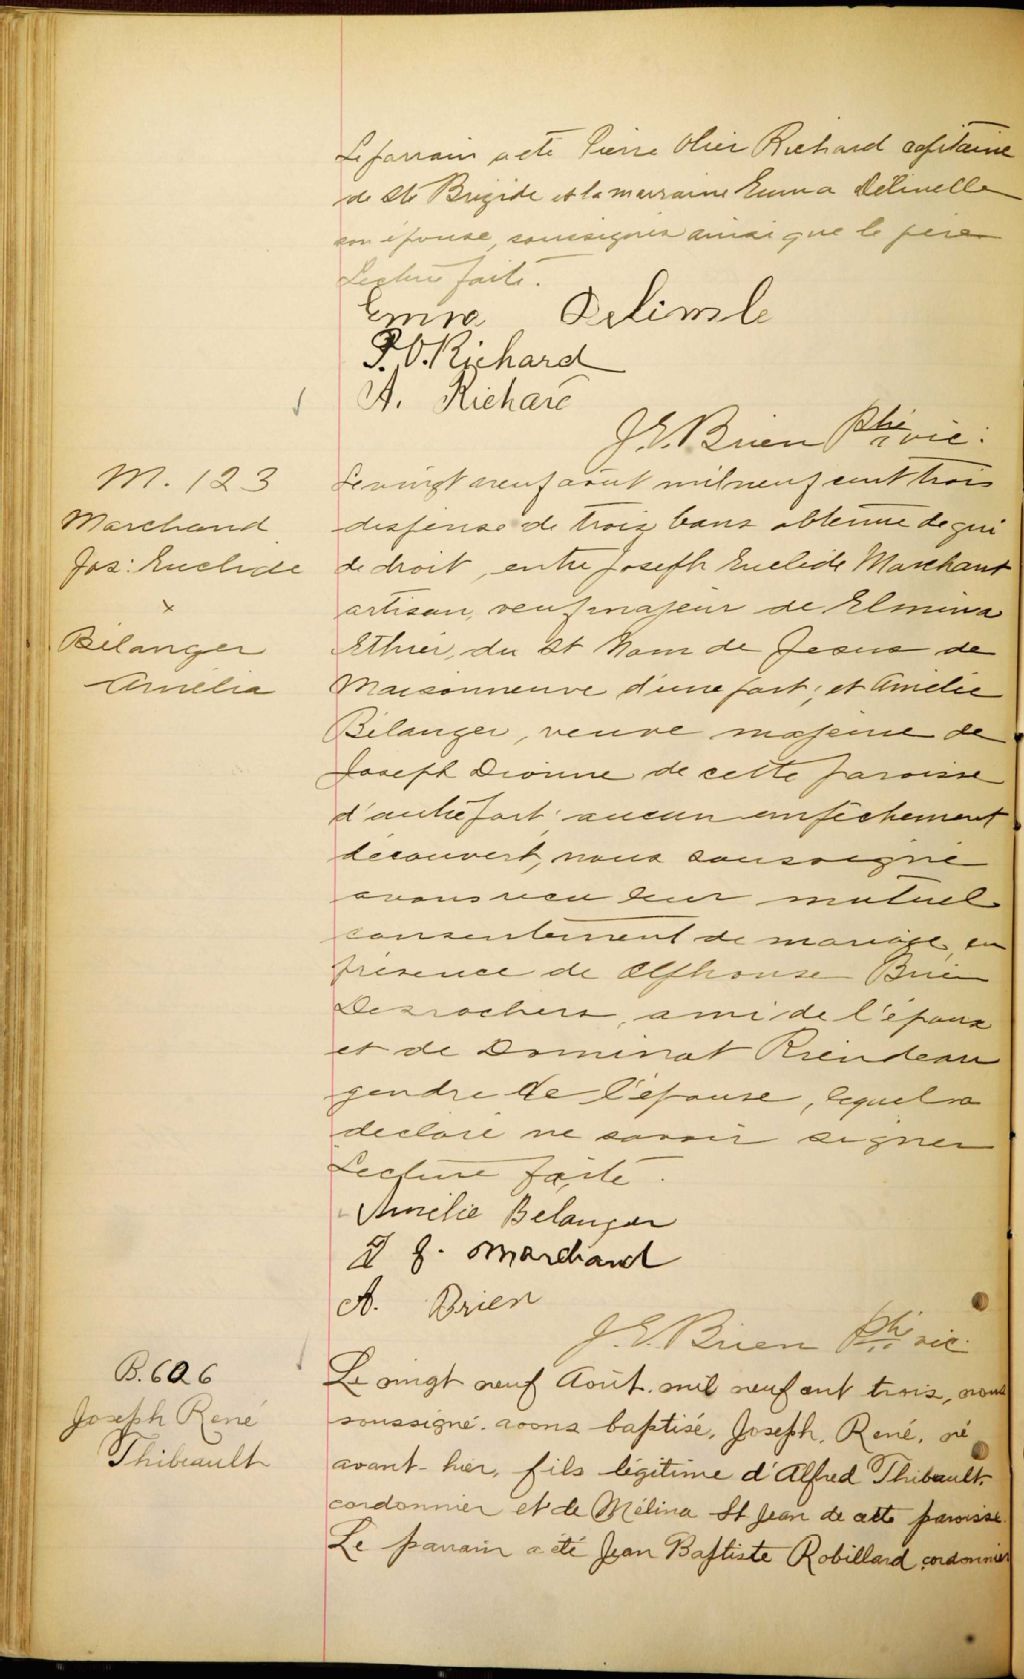 Le parrain a été Pierre Olier Richard capitaine
de Ste Brigide et la marraine Emma Délinelle
son épouse, soussignés ainsi que le père
Lecture faite.
Emma Delinele
P.O. Richard
A. Richard
J.E. Brien ptre vic:
M. 123
Marchand
Jos: Euclide
x
Bélanger
Amélia
Le vingt neuf août mil neuf cent trois
dispense de trois bans obtenue de qui
de droit, entre Joseph Euclide Marchant
artisan, veuf majeur de Elmina
Ethier, du St Nom de Jesus de
Maisonneuve d'une part; et Amélie
Bélanger, veuve majeure de
Joseph Dionne de cette paroisse
d'autre part; aucun empêchement
découvert, nous soussigné
avons reçu leur mutuel
consentement de mariage, en
présence de Alphonse Brien
Desrochers, ami de l'époux
et de Dominat Riendeau
gendre de l'épouse, lequel a
déclaré ne savoir signer
Lecture faite.
Amélie Bélanger
J E. Marchand
A. Brien
J.E. Brien ptre vic.
B. 606
Joseph René
Thibeault
Le vingt neuf Août mil neuf cent trois, nous
soussigné avons baptisé, Joseph, René, né
avant-hier, fils légitime d'Alfred Thibault,
cordonnier et de Mélina St Jean de cette paroisse.
Le parrain a été Jean Baptiste Robillard cordonnier